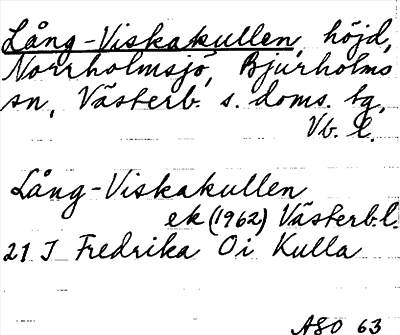 Lång-Viskakullen, höjd,
Norrholmsjö, Bjurholms
sn, Västerb. s. doms. tg,
Vb. l.
Lång-Viskakullen
ek (1962) Västerb.l.
21 J Fredrika Oi Kulla
ASO 63